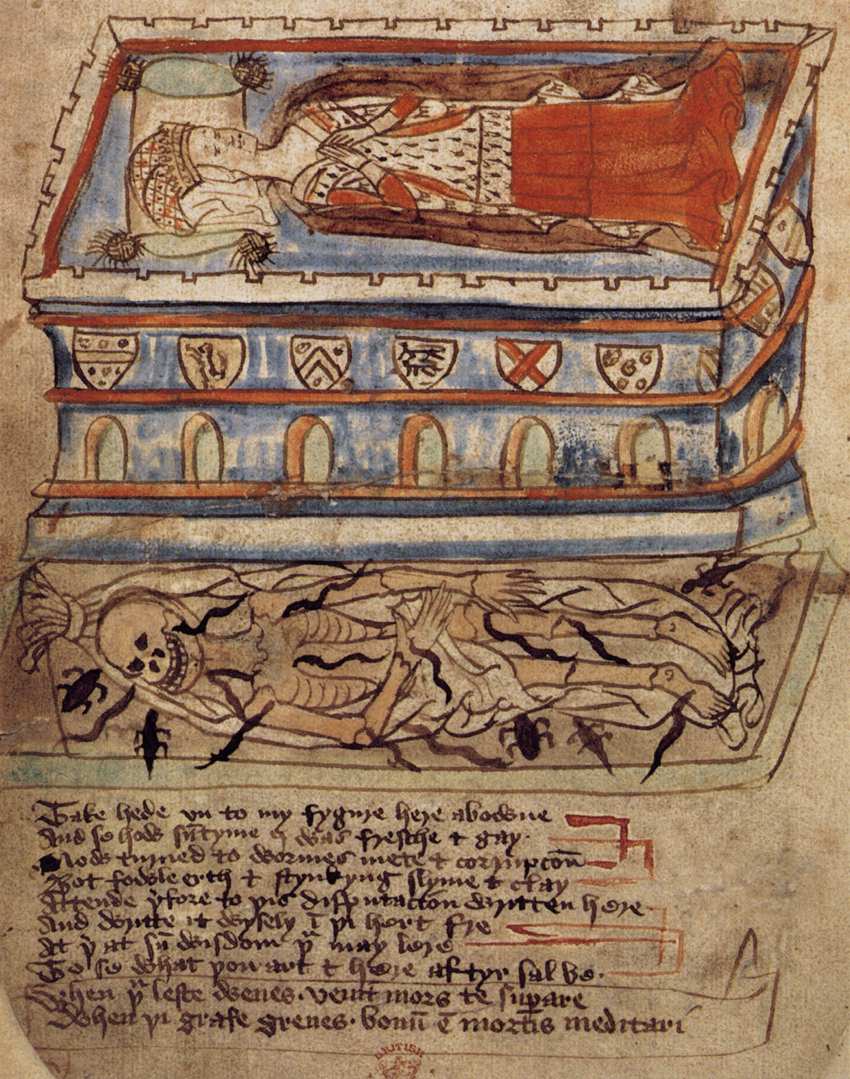 Take hede vn to my fygure here abowne
And se how sūtyme I was fresche & gay
Now turned to wormes mete & corrupcoū
Bot fowle erth & stynkyng slyme & clay
Attende þfore to þis disputacion written here
And writte it wysely ī þi hert fre
At þ at sū wisdom þᵘ may lere
To se what þou art & here aftyr sal be.
When þᵘ leste wenes. venit mors te supare
When þi grafe grenes. bonū ē mortis meditari
BRITISH